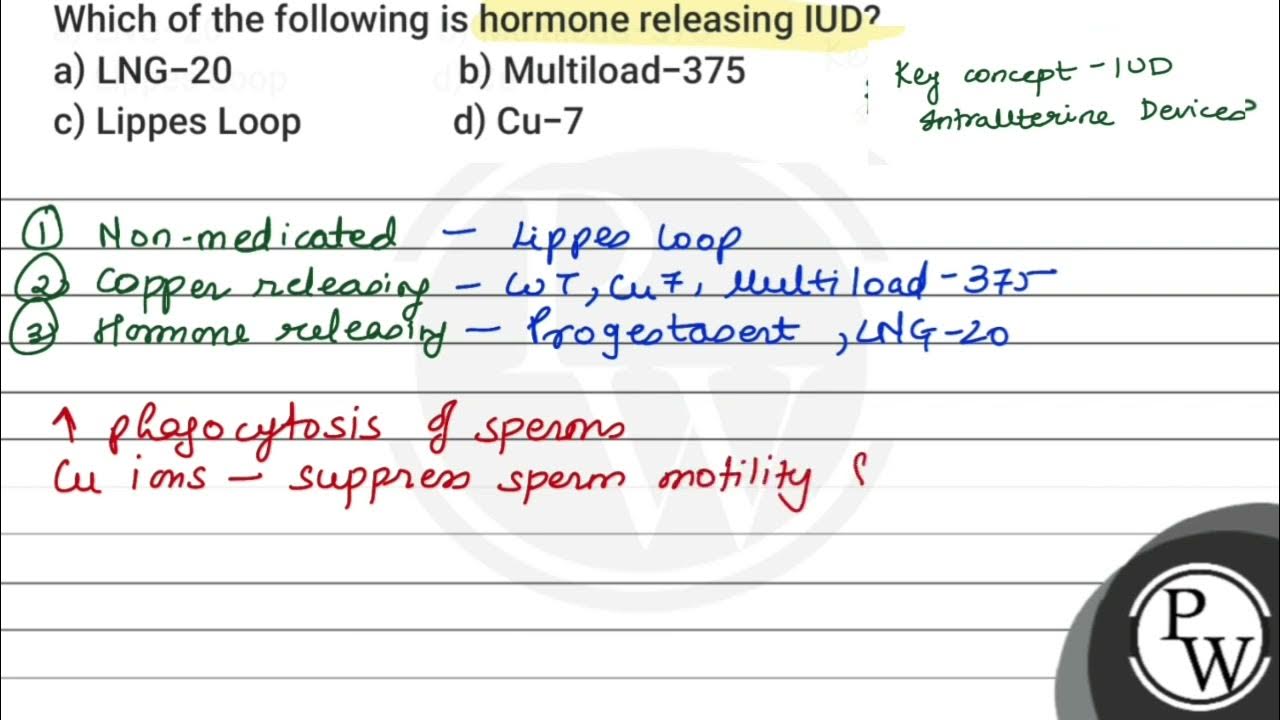 Which of the following is hormone releasing IUD?
a) LNG–20 b) Multiload–375
c) Lippes Loop d) Cu–7
Key concept - IUD
Intrauterine Devices
① Non-medicated - Lippes loop
② Copper releasing - CuT, Cu7, Multiload-375
③ Hormone releasing - Progestasert, LNG-20
↑ phagocytosis of sperms
Cu ions - suppress sperm motility &
P
W